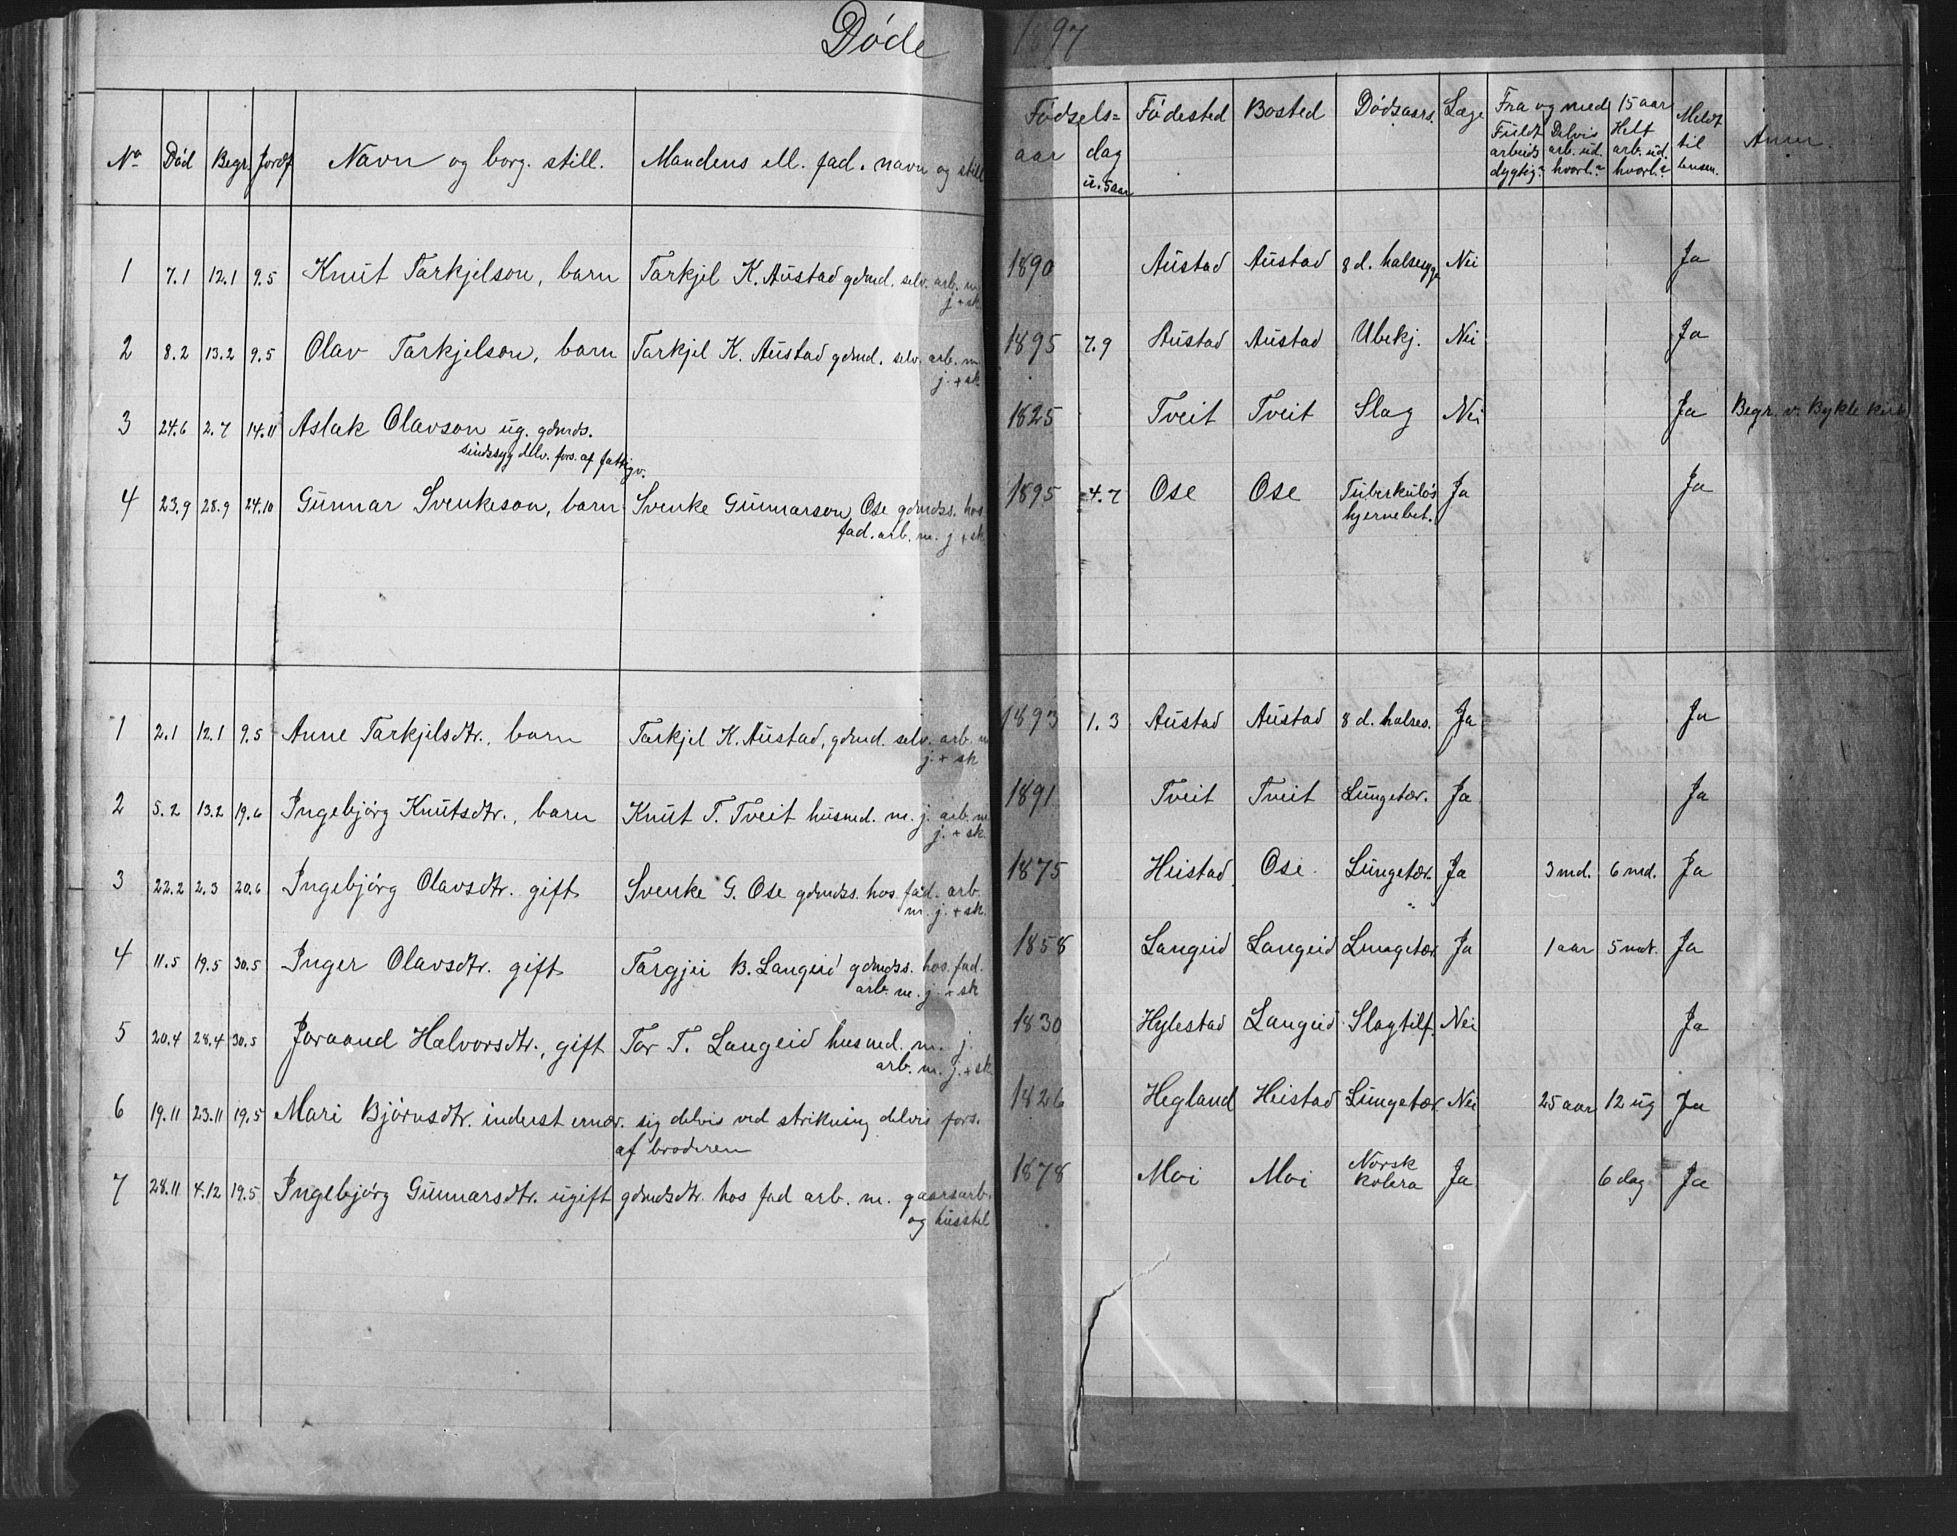 Døde 1897
No Død Begr. Jordf Navn og borg. still. Mandens ell. fad. navn og still Fødsels= aar dag u. 5 aar Fødested Bosted Dødsaars. Læge Fra og med 15 aar Fuldt arbeids dygtig Delvis arb. ud. hvorl. Helt arb. ud. hvorl. Meldt til lensm. Anm.
1 7.1 12.1 9.5 Knut Tarkjelson, barn Tarkjel K. Austad gdmd. selv. arb. m. 1890 Austad Austad 8 d. halsesyge Nei Ja
j + sk.
2 8.2 13.2 9.5 Olav Tarkjelson, barn Tarkjel K. Austad gdmd. selv. arb. m. 1895 7.9 Austad Austad Ubekj. Nei Ja
j. + sk.
3 24.6 2.7 14.11 Aslak Olavson ug. gdmds. 1825 Tveit Tveit Slag Nei Ja Begr. v. Bykle kirke
sindssyg delv. fors. af fattigv.
4 23.9 28.9 24.10 Gunnar Svenkeson, barn Svenke Gunnarson Ose gdmdss. hos 1895 4.7 Ose Ose Tuberkuløs Ja Ja
fad. arb. m. j + sk. hjernebet.
1 2.1 12.1 9.5 Anne Tarkjelsdtr., barn Tarkjel K. Austad, gdmd. selv. arb. m 1893 1.3 Austad Austad 8 d. halses. Ja Ja
j. + sk
2 5.2 13.2 19.6 Ingebjørg Knutsdtr., barn Knut T. Tveit husmd. m. j. arb. m 1891 Tveit Tveit Lungetær. Ja Ja
j. + sk.
3 22.2 2.3 20.6 Ingebjørg Olavsdtr. gift Svenke G. Ose gdmdss. hos fad. arb. 1875 Heistad Ose Lungetær. Ja 3 md. 6 md. Ja
m. j. + sk.
4 11.5 19.5 30.5 Inger Olavsdtr. gift Targjei B. Langeid gdmdss. hos. fad. 1858 Langeid Langeid Lungetær Ja 1 aar 5 mdt. Ja
arb. m. j. + sk
5 20.4 28.4 30.5 Joraand Halvorsdtr., gift Tor T. Langeid husmd. m. j. 1830 Hylestad Langeid Slagtilf. Nei Ja
arb. m. j. + sk.
6 19.11 23.11 19.5 Mari Bjørnsdtr. inderst ernær. sig delvis ved strikning delvis fors. 1826 Hegland Heistad Lungetær. Nei 25 aar 12 ug Ja
af broderen
7 28.11 4.12 19.5 Ingebjørg Gunnarsdtr. ugift gdmdsdtr. hos fad arb. m. gaarsarb. 1878 Moi Moi Norsk kolera Ja 6 dag Ja
og husstel